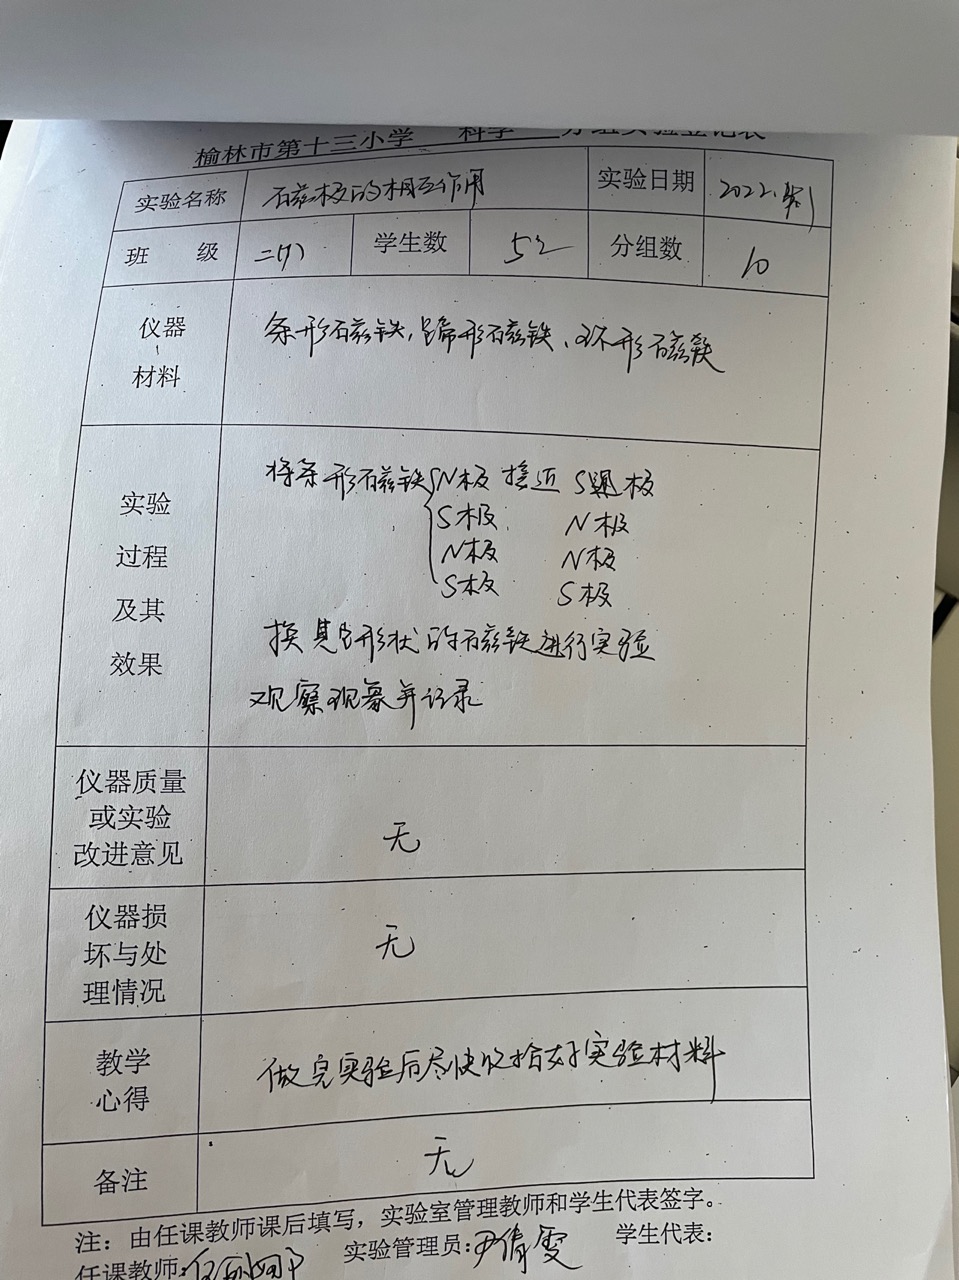 榆林市第十三小学 科学 分组实验登记表
实验名称 磁极的相互作用 实验日期 2022.
班 级 二(7) 学生数 52 分组数 10
仪器
材料
条形磁铁,蹄形磁铁、环形磁铁
实验
过程
及其
效果
将条形磁铁 N极 接近 S极
S极 N极
N极 N极
S极 S极
换其它形状的磁铁进行实验
观察现象并记录
仪器质量
或实验
改进意见
无
仪器损
坏与处
理情况
无
教学
心得
做完实验后尽快收拾好实验材料
备注 无
注:由任课教师课后填写,实验室管理教师和学生代表签字。
任课教师: 实验管理员:尹倩雯 学生代表: